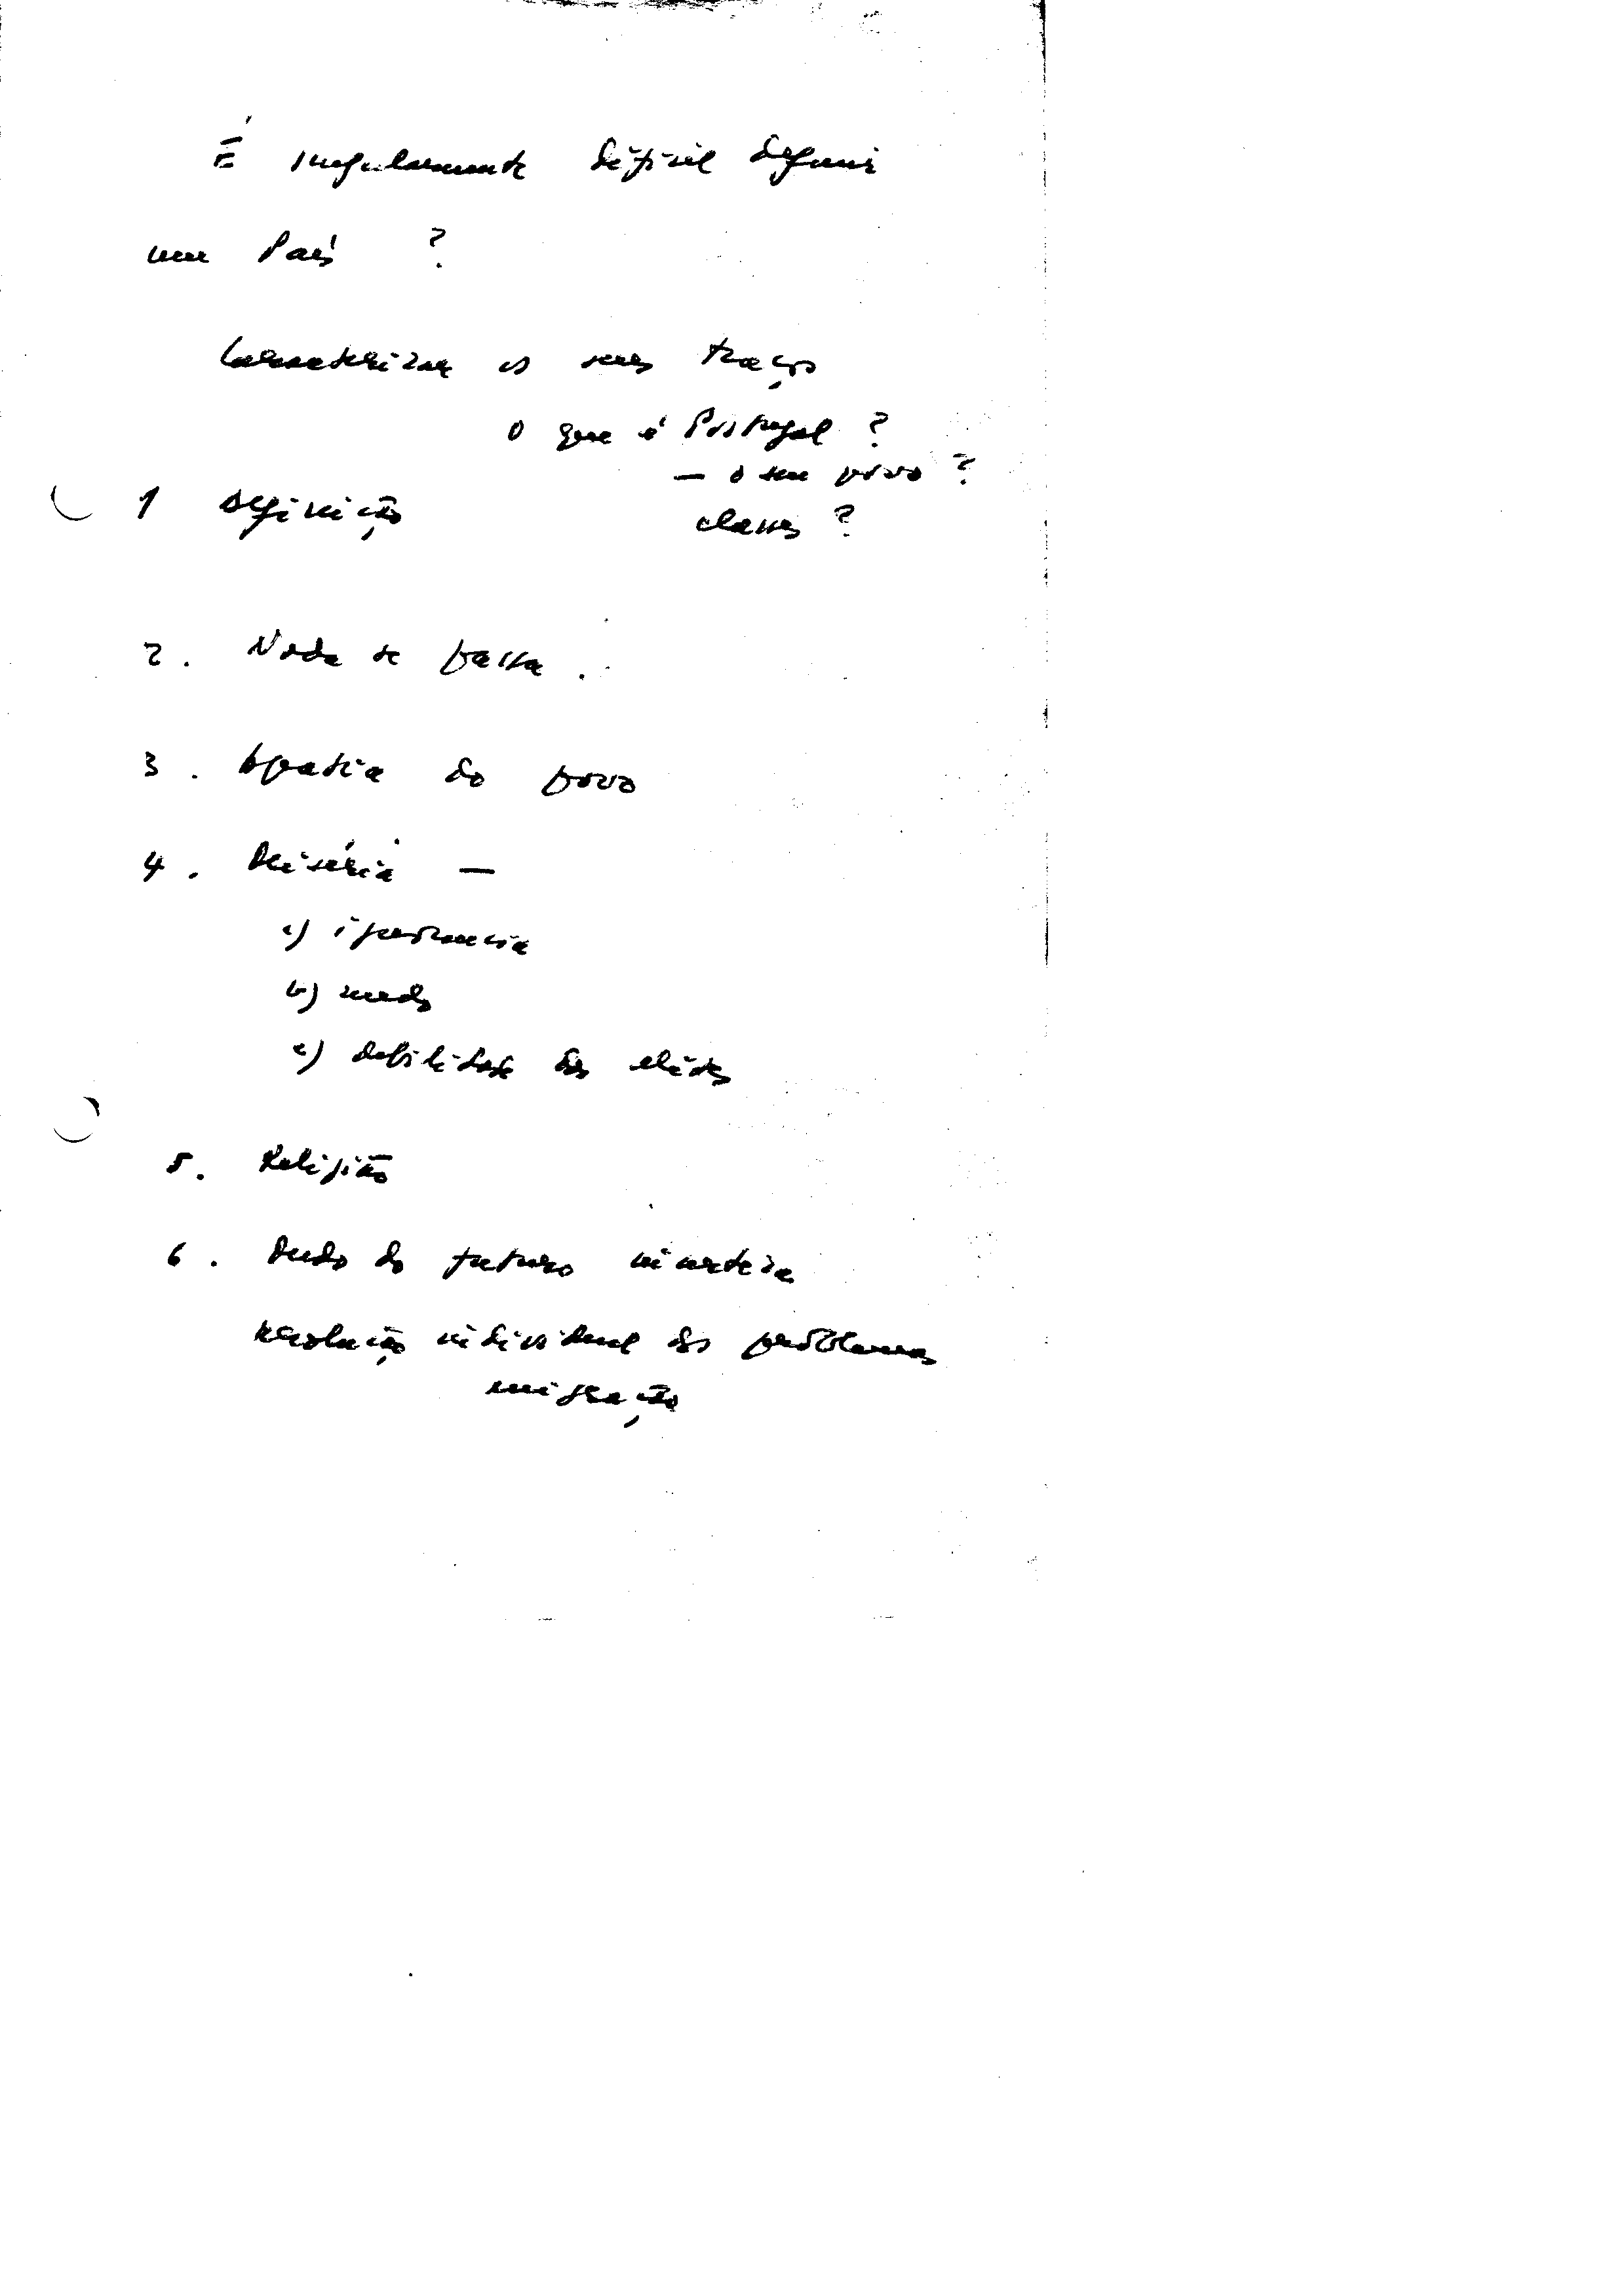 É singularmente difícil definir
um País ?
Caracterizar os seus traços
O que é Portugal ?
— o seu povo ?
1 definição
classes ?
2. Nada se passa.
3. Apatia do povo
4. Miséria —
a) ignorancia
b) medo
c) debilidade das elites
5. Religião
6. Medo do futuro incerteza
resolução individual dos problemas
emigração